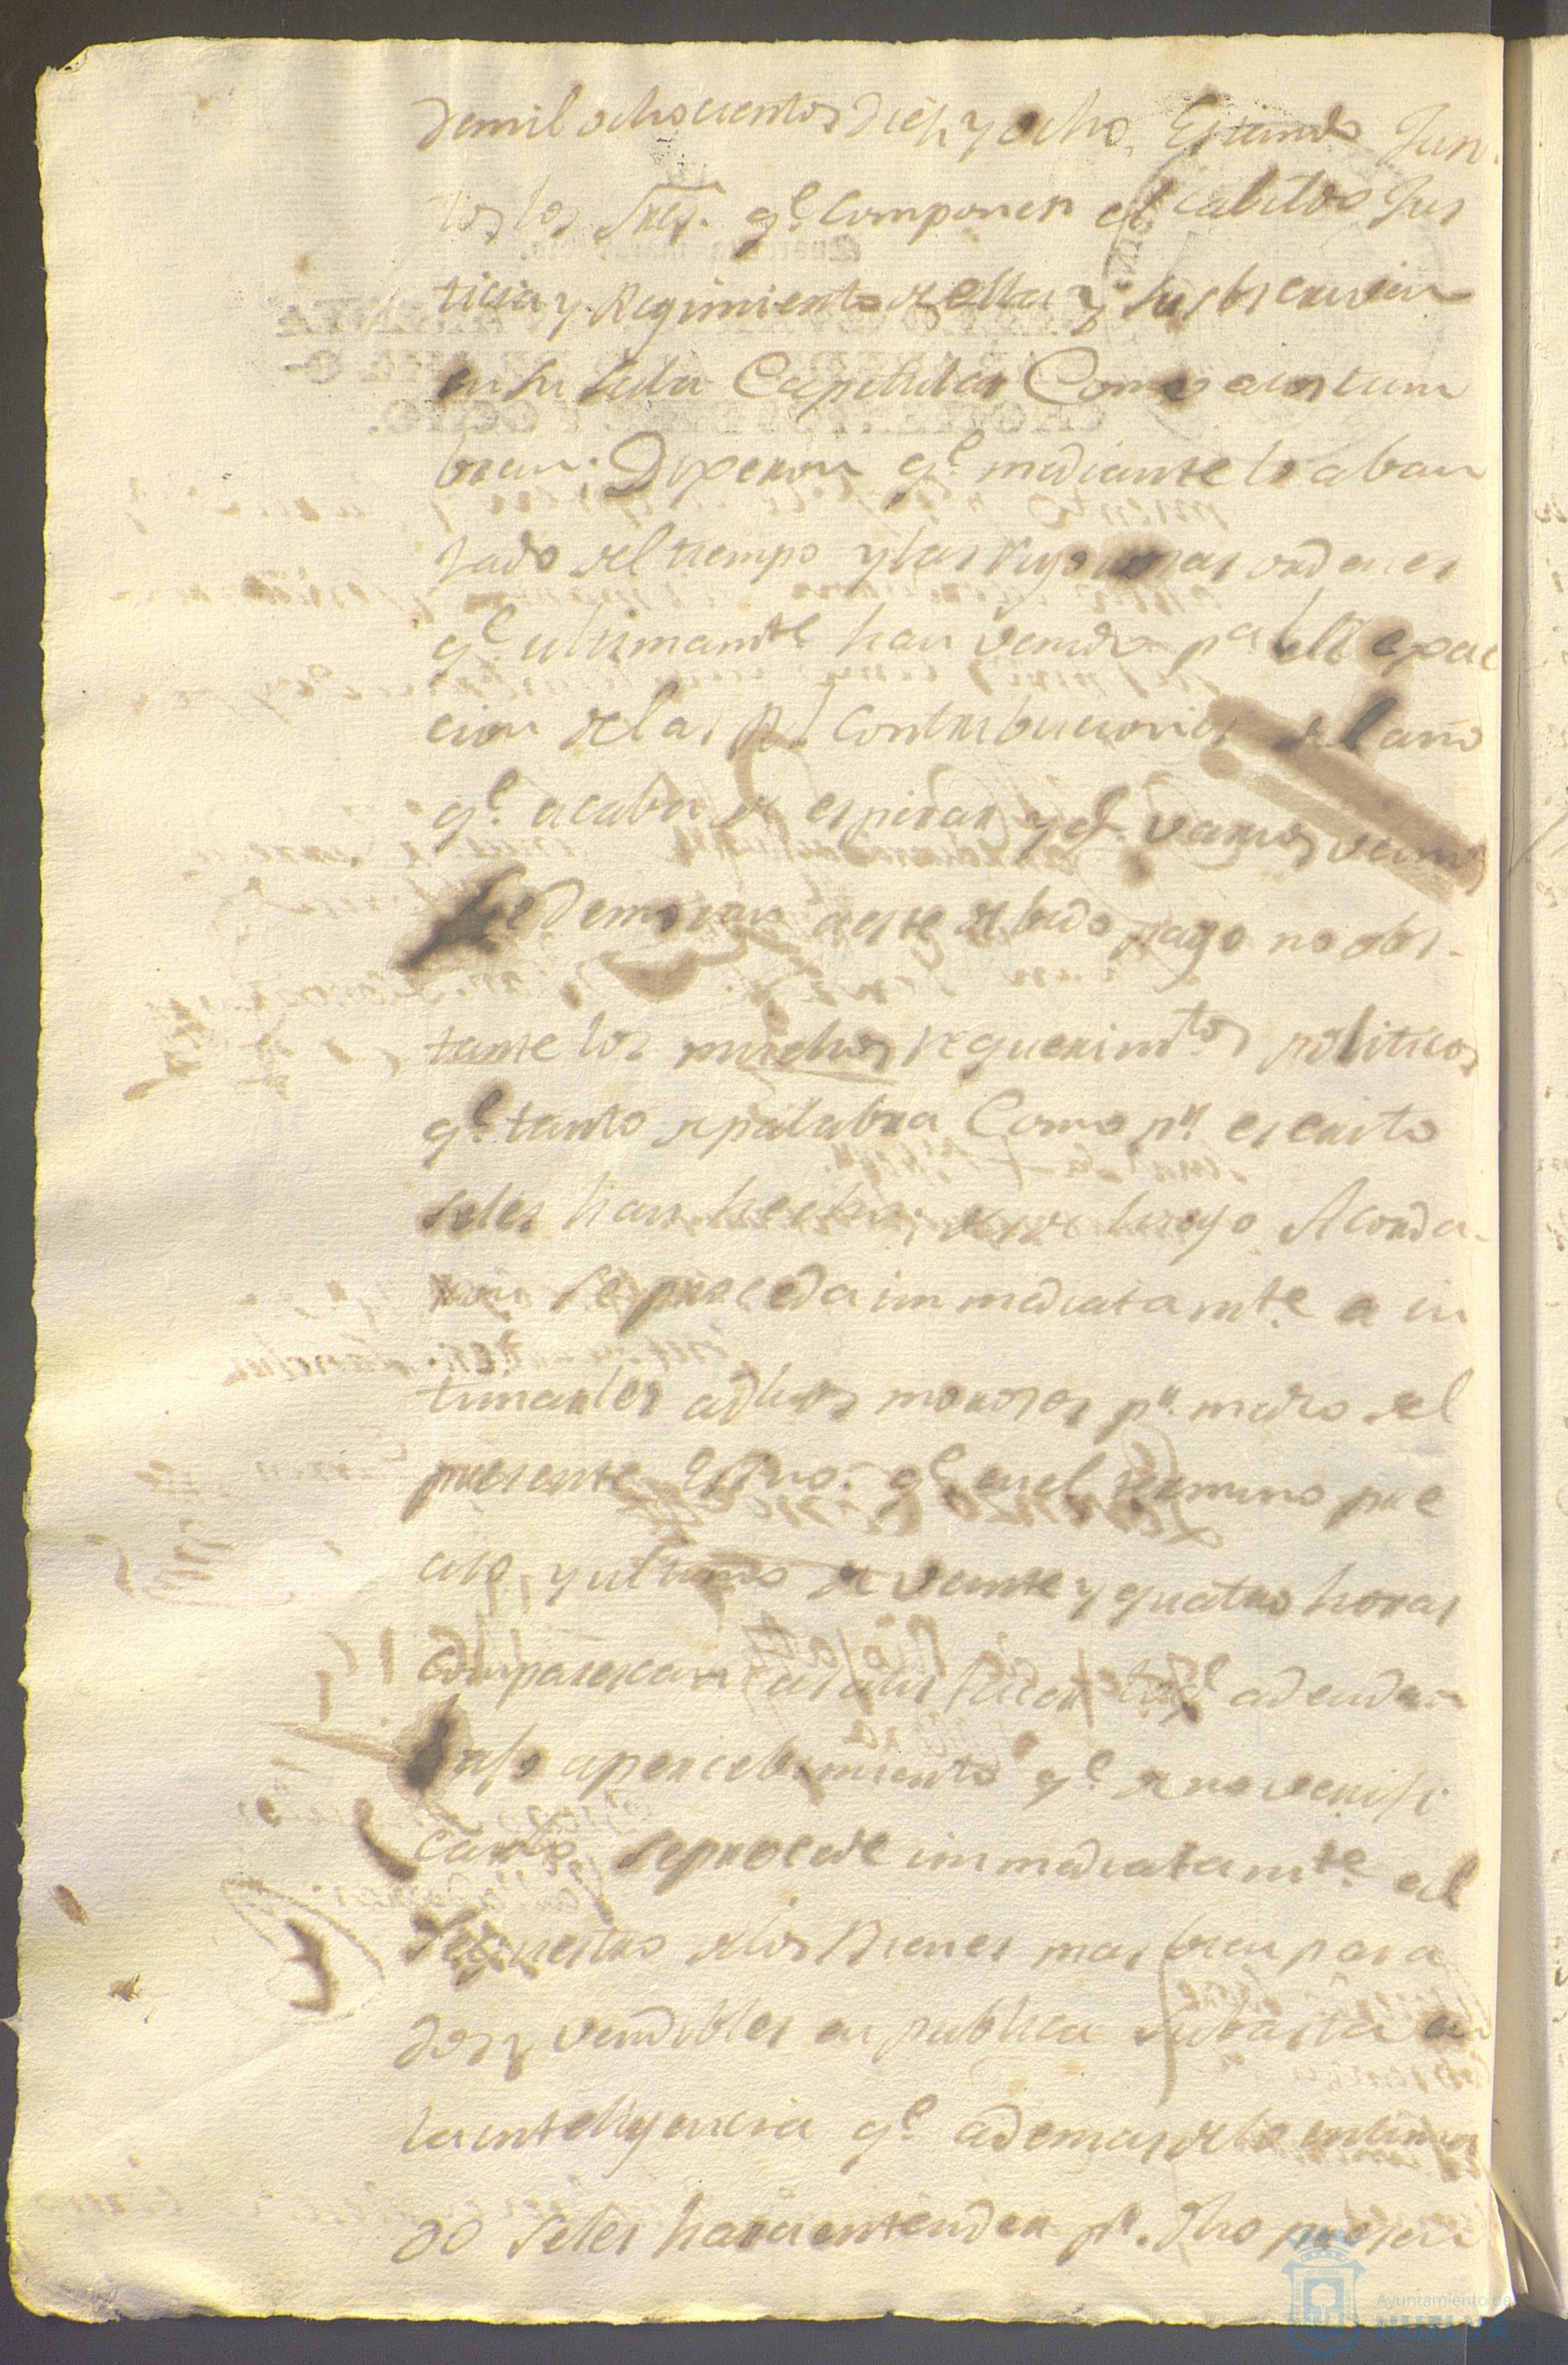 de mil ochocientos diez y ocho, Estando Jun-
tos los Sres. qe. componen el cabildo Jus
ticia y Regimiento de ella y
en su sala Capitular Como acostum
bran. Dixeron qe. mediante lo aban
zado del tiempo y las ordenes
qe. ultimamte. han venido pa. la
cion de las Rs. contribuciones del año
qe. acaba de espirar y qe. varios vecin
se demoran a este debido pago no obs-
tante los muchos requerimtos. politicos
qe. tanto de palabra Como pr. escrito
se les han hecho; desde luego Acorda-
ron se proceda inmediatamte. a in
timarles a dhos morosos pr. medio del
presente Essno. qe. en el termino pre
ciso, y ultimo de veinte y quatro horas
comparescan a satisfacer lo qe. adeudan
bajo apercebimiento qe. de no verifi
carlo se procede inmediatamte. al
Sequestro de los Bienes mas bien para
dos y vendibles en publica subasta en
la inteligencia qe. ademas de lo
do se les hara entender pr. dho presen
Ayuntamiento de
HUELVA